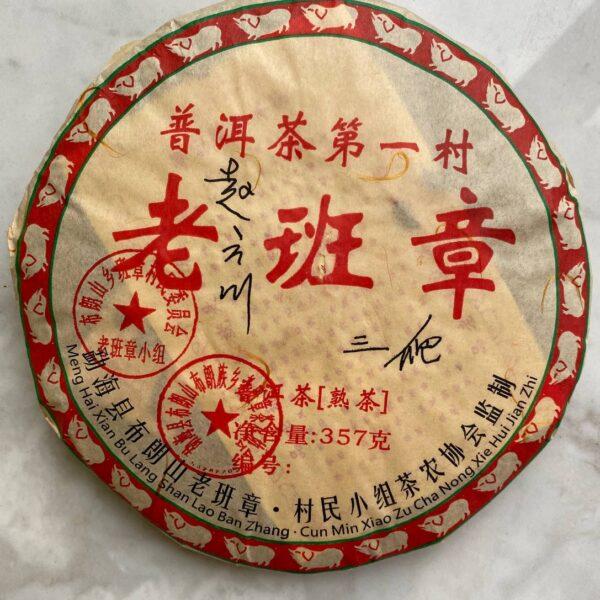 普洱茶第一村
老班章
普洱茶[熟茶]
净含量:357克
编号:
勐海县布朗山老班章·村民小组茶农协会监制
Meng Hai Xian Bu Lang Shan Lao Ban Zhang · Cun Min Xiao Zu Cha Nong Xie Hui Jian Zhi
布朗山乡班章村民委员会
老班章小组